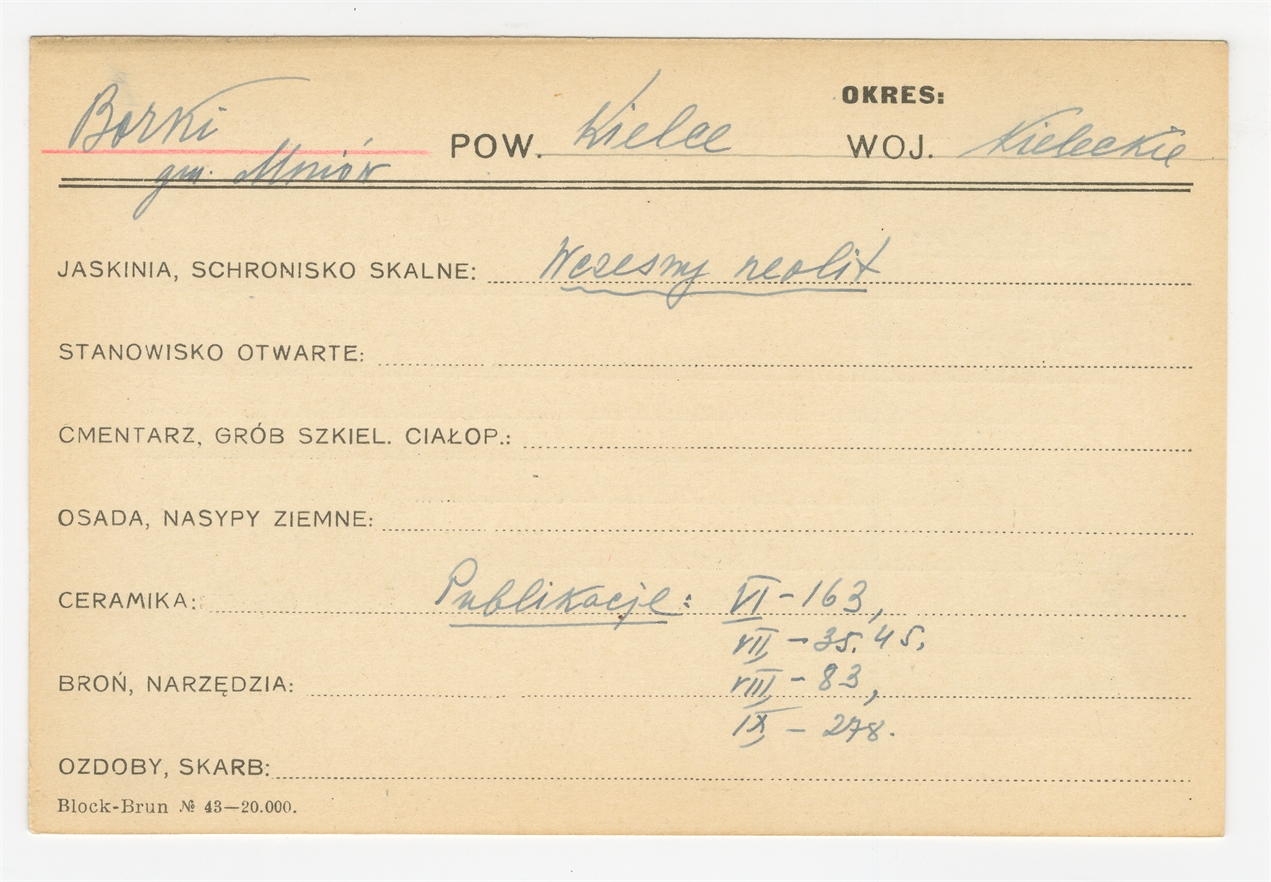 OKRES:
Borki POW. Kielce WOJ. Kieleckie
gm. Mniów
JASKINIA, SCHRONISKO SKALNE: Wczesny neolit
STANOWISKO OTWARTE:
CMENTARZ, GRÓB SZKIEL. CIAŁOP.:
OSADA, NASYPY ZIEMNE:
CERAMIKA: Publikacje: VI - 163,
VII - 35. 45,
BROŃ, NARZĘDZIA: VIII - 83,
IX - 278.
OZDOBY, SKARB:
Block-Brun № 43—20.000.